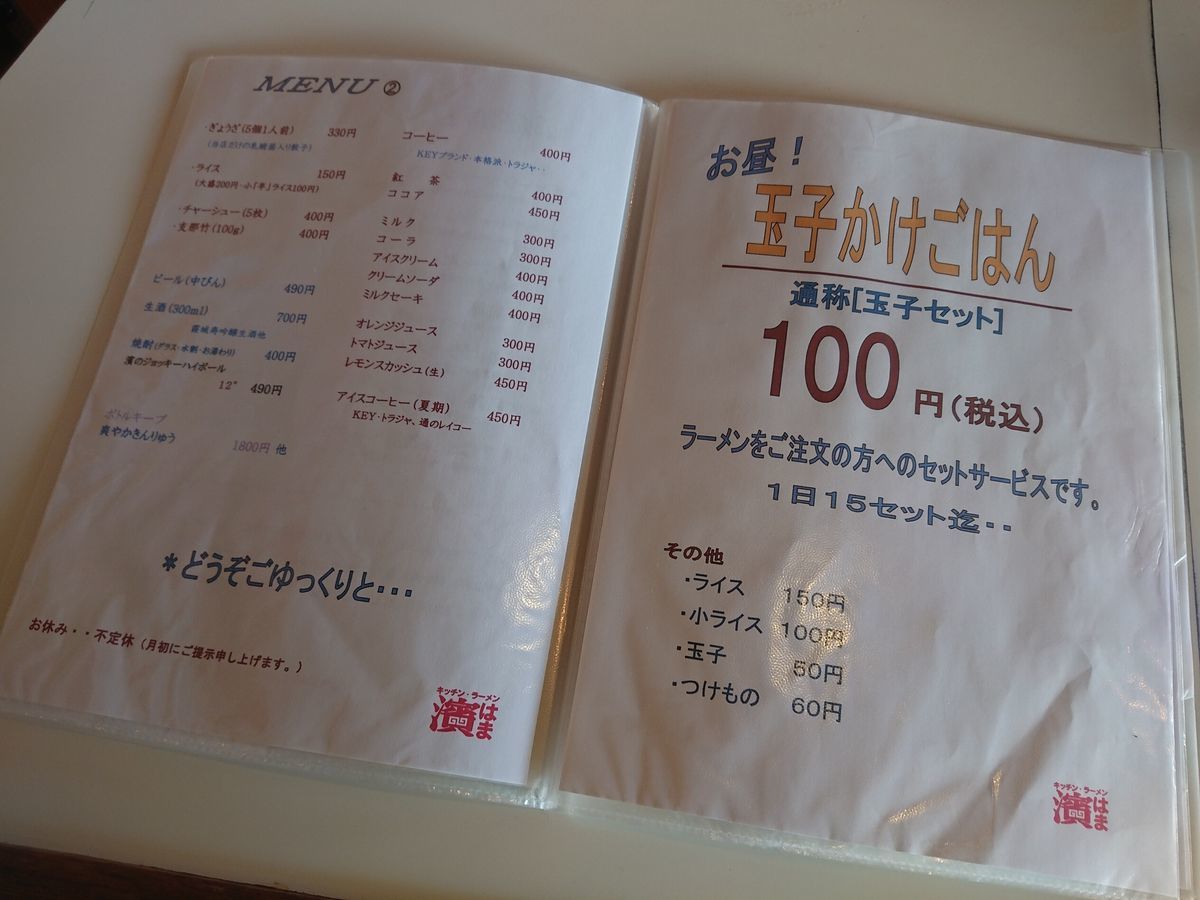 MENU ②
・ぎょうざ(5個1人前) 330円
(当店だけの乳酸菌入り餃子)
・ライス 150円
(大盛200円・小「半」ライス100円)
・チャーシュー(5枚) 400円
・支那竹(100g) 400円
ビール(中びん) 490円
生酒(300ml) 700円
霞城寿吟醸生酒他
焼酎(グラス・水割・お湯わり) 400円
濱のジョッキーハイボール
12° 490円
ボトルキープ
爽やかきんりゅう 1800円 他
コーヒー 400円
KEYブランド・本格派・トラジャ・・
紅 茶 400円
ココア 450円
ミルク 300円
コーラ 300円
アイスクリーム 400円
クリームソーダ 400円
ミルクセーキ 400円
オレンジジュース 300円
トマトジュース 300円
レモンスカッシュ(生) 450円
アイスコーヒー(夏期) 450円
KEY・トラジャ、通のレイコー
*どうぞごゆっくりと・・・
お休み・・不定休(月初にご提示申し上げます。)
キッチン・ラーメン
濱はま
お昼!
玉子かけごはん
通称[玉子セット]
100円(税込)
ラーメンをご注文の方へのセットサービスです。
1日15セット迄・・
その他
・ライス 150円
・小ライス 100円
・玉子 50円
・つけもの 60円
キッチン・ラーメン
濱はま